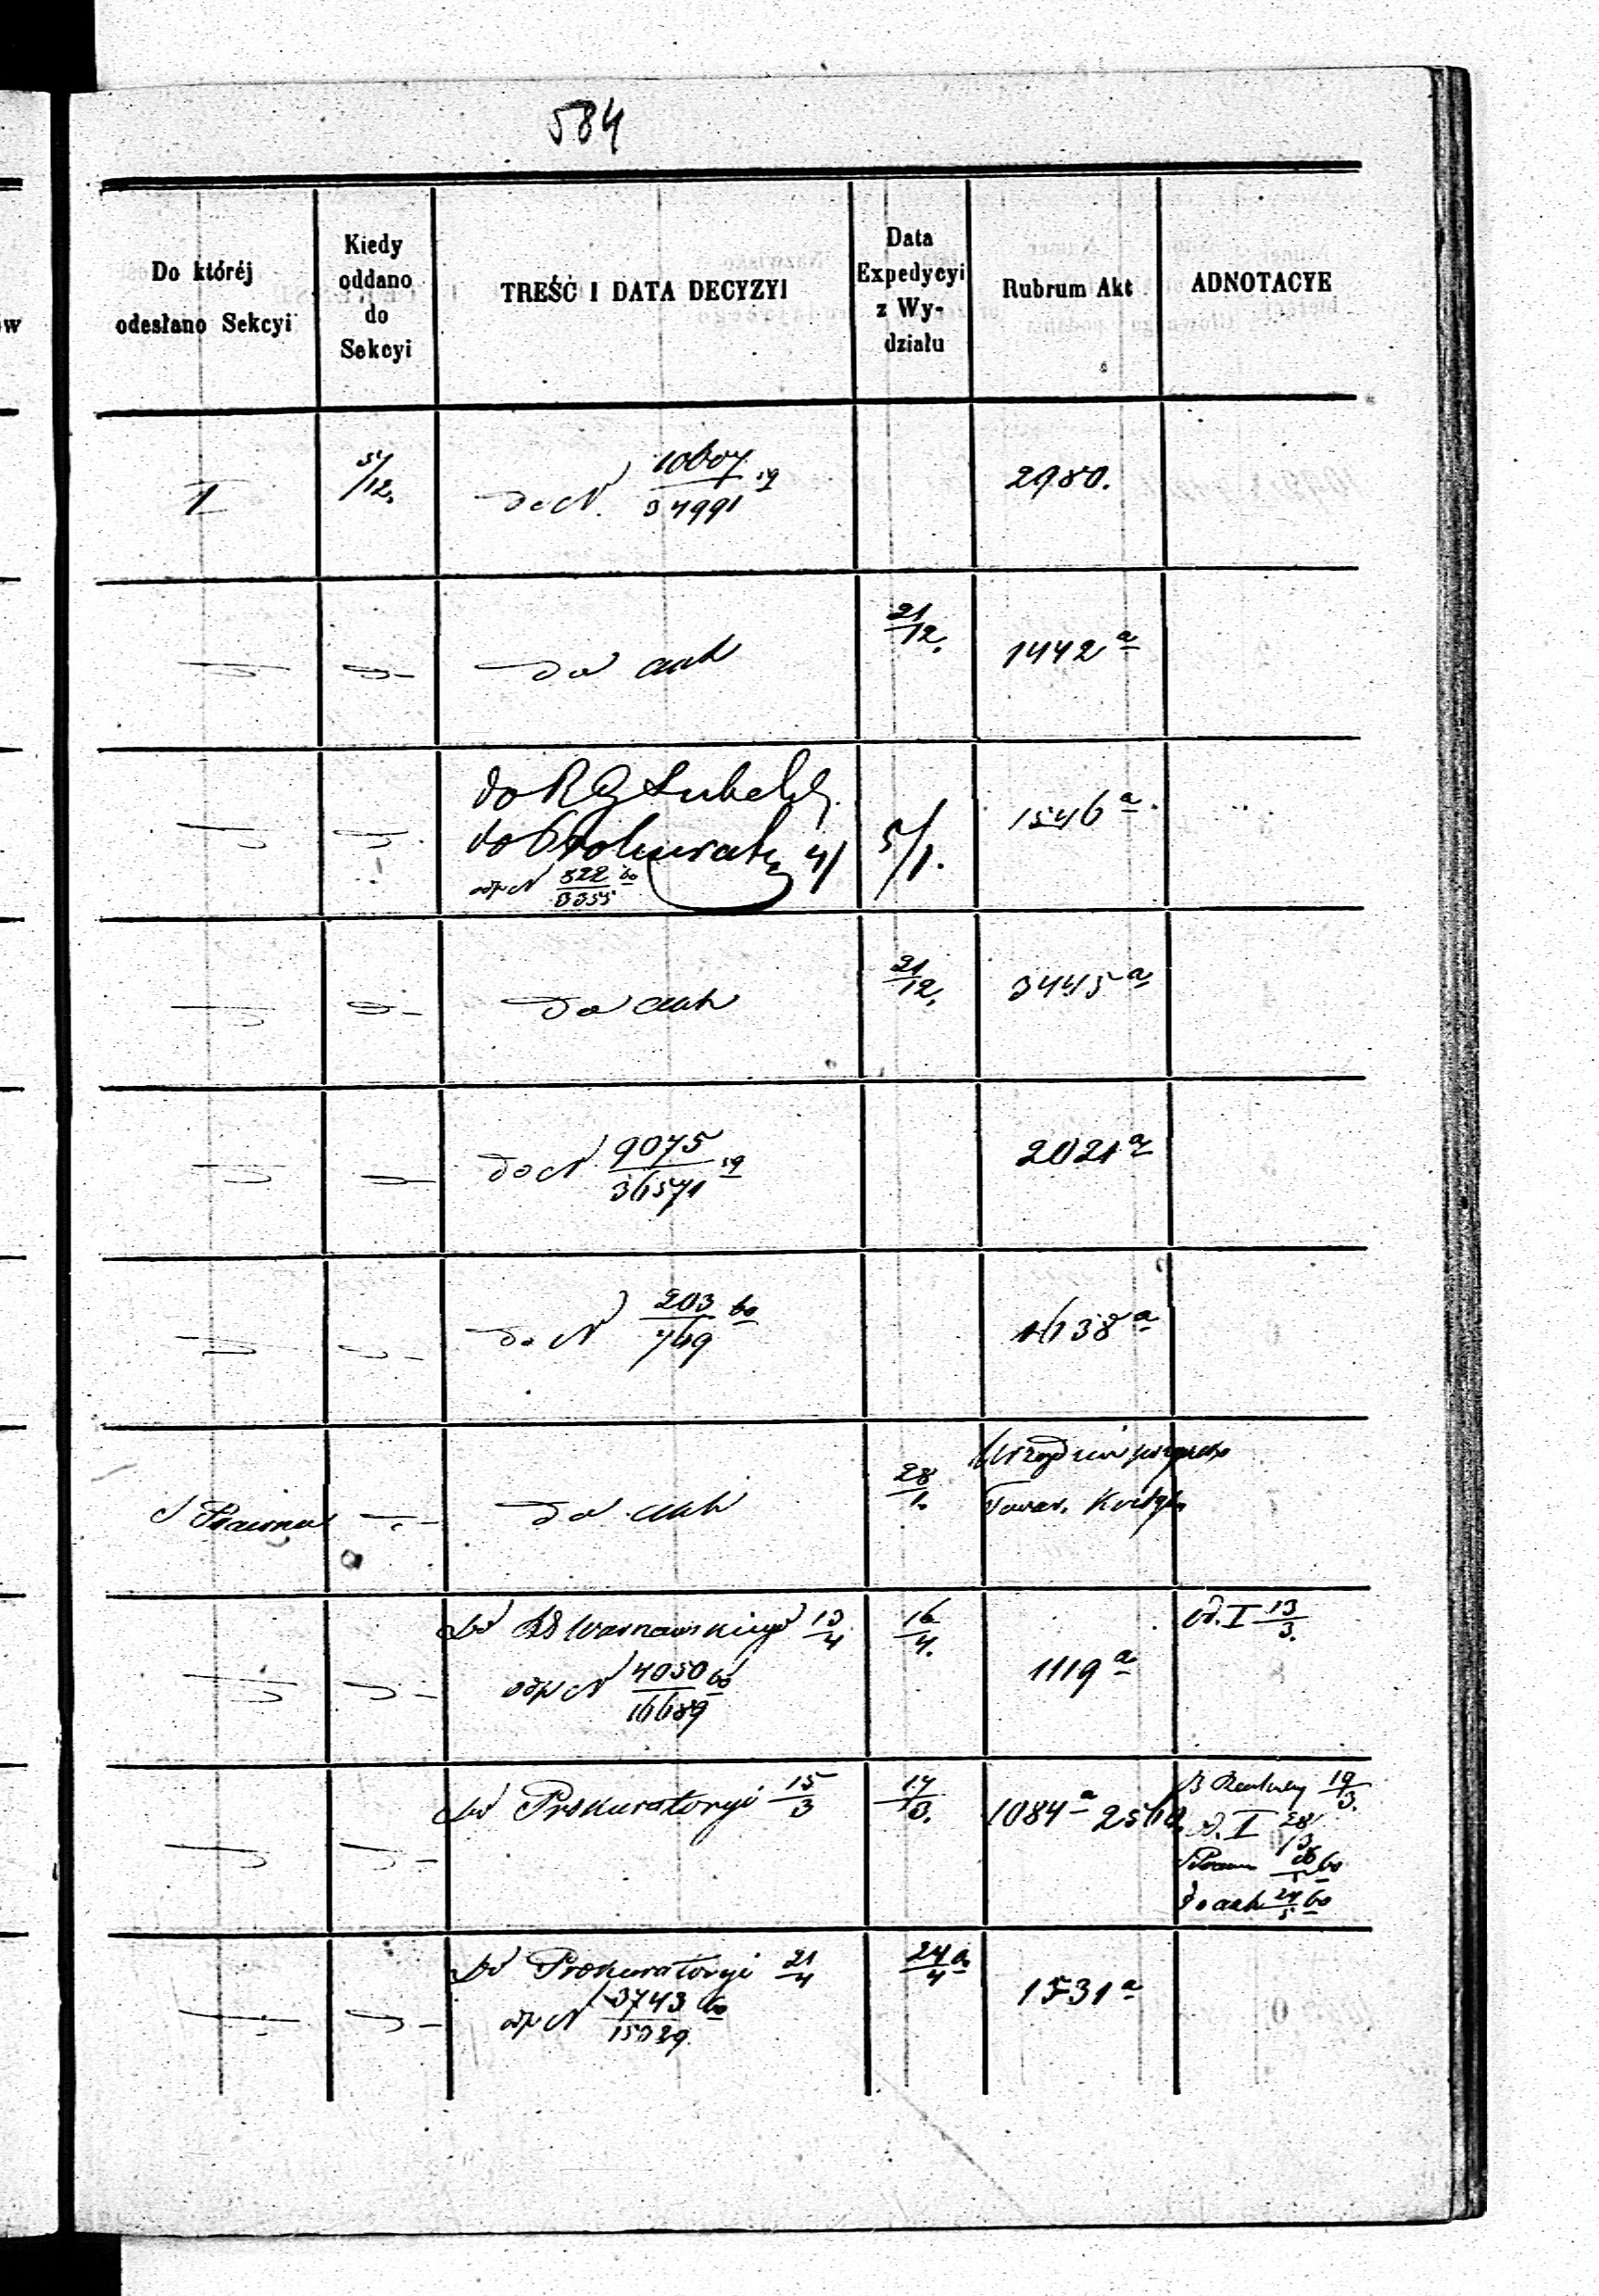 584
Do któréj
odesłano Sekcyi
Kiedy
oddano
do
Sekcyi
TREŚĆ I DATA DECYZYI
Data
Expedycyi
z Wy-
działu
Rubrum Akt
ADNOTACYE
I
5/12.
do N. 10607/34991 59
2980.
do akt
21/12.
1442 a
do R G Lubelsk.
do Prokurator 4/1
odp N 822/3355 60
5/1.
1546 a.
do akt
21/12.
3445 a
do N. 9075/36571 59
2021 a
do N 203/769 60
1638 a
S Prawna
do akt
28/1.
Towar. Kredyt.
do RG Warszawskiego 13/4
odp N 4050/16689 60
16/4.
1119 a
Od. I 13/3.
do Prokuratoryi 15/3
17/3.
1084 a 2560.
19/3.
Od. I 28/3
do akt 24/5 60
do Prokuratoryi 21/4
odp N 3743/15329 60
24/4 60
1531 a